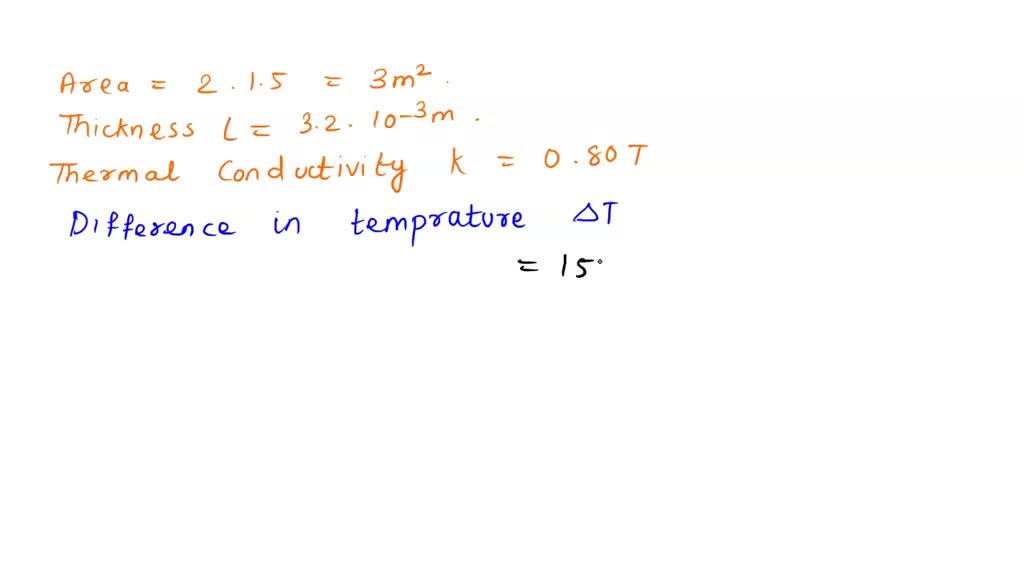 Area = 2 . 1.5 = 3m².
Thickness L = 3.2 . 10⁻³m .
Thermal Conductivity k = 0.80 T
Difference in temprature ΔT
= 15°